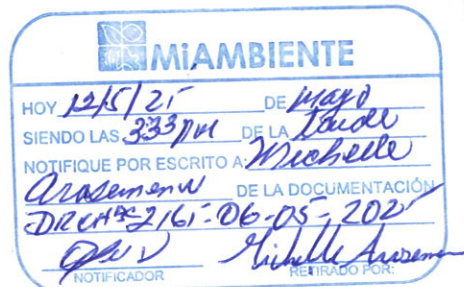 MiAMBIENTE
HOY 12/5/25 DE mayo
SIENDO LAS 3:33 pm DE LA tarde
NOTIFIQUE POR ESCRITO A: Michelle
Arosemena DE LA DOCUMENTACIÓN
2161-06-05-2025
NOTIFICADOR Michelle Arosemena
RETIRADO POR: